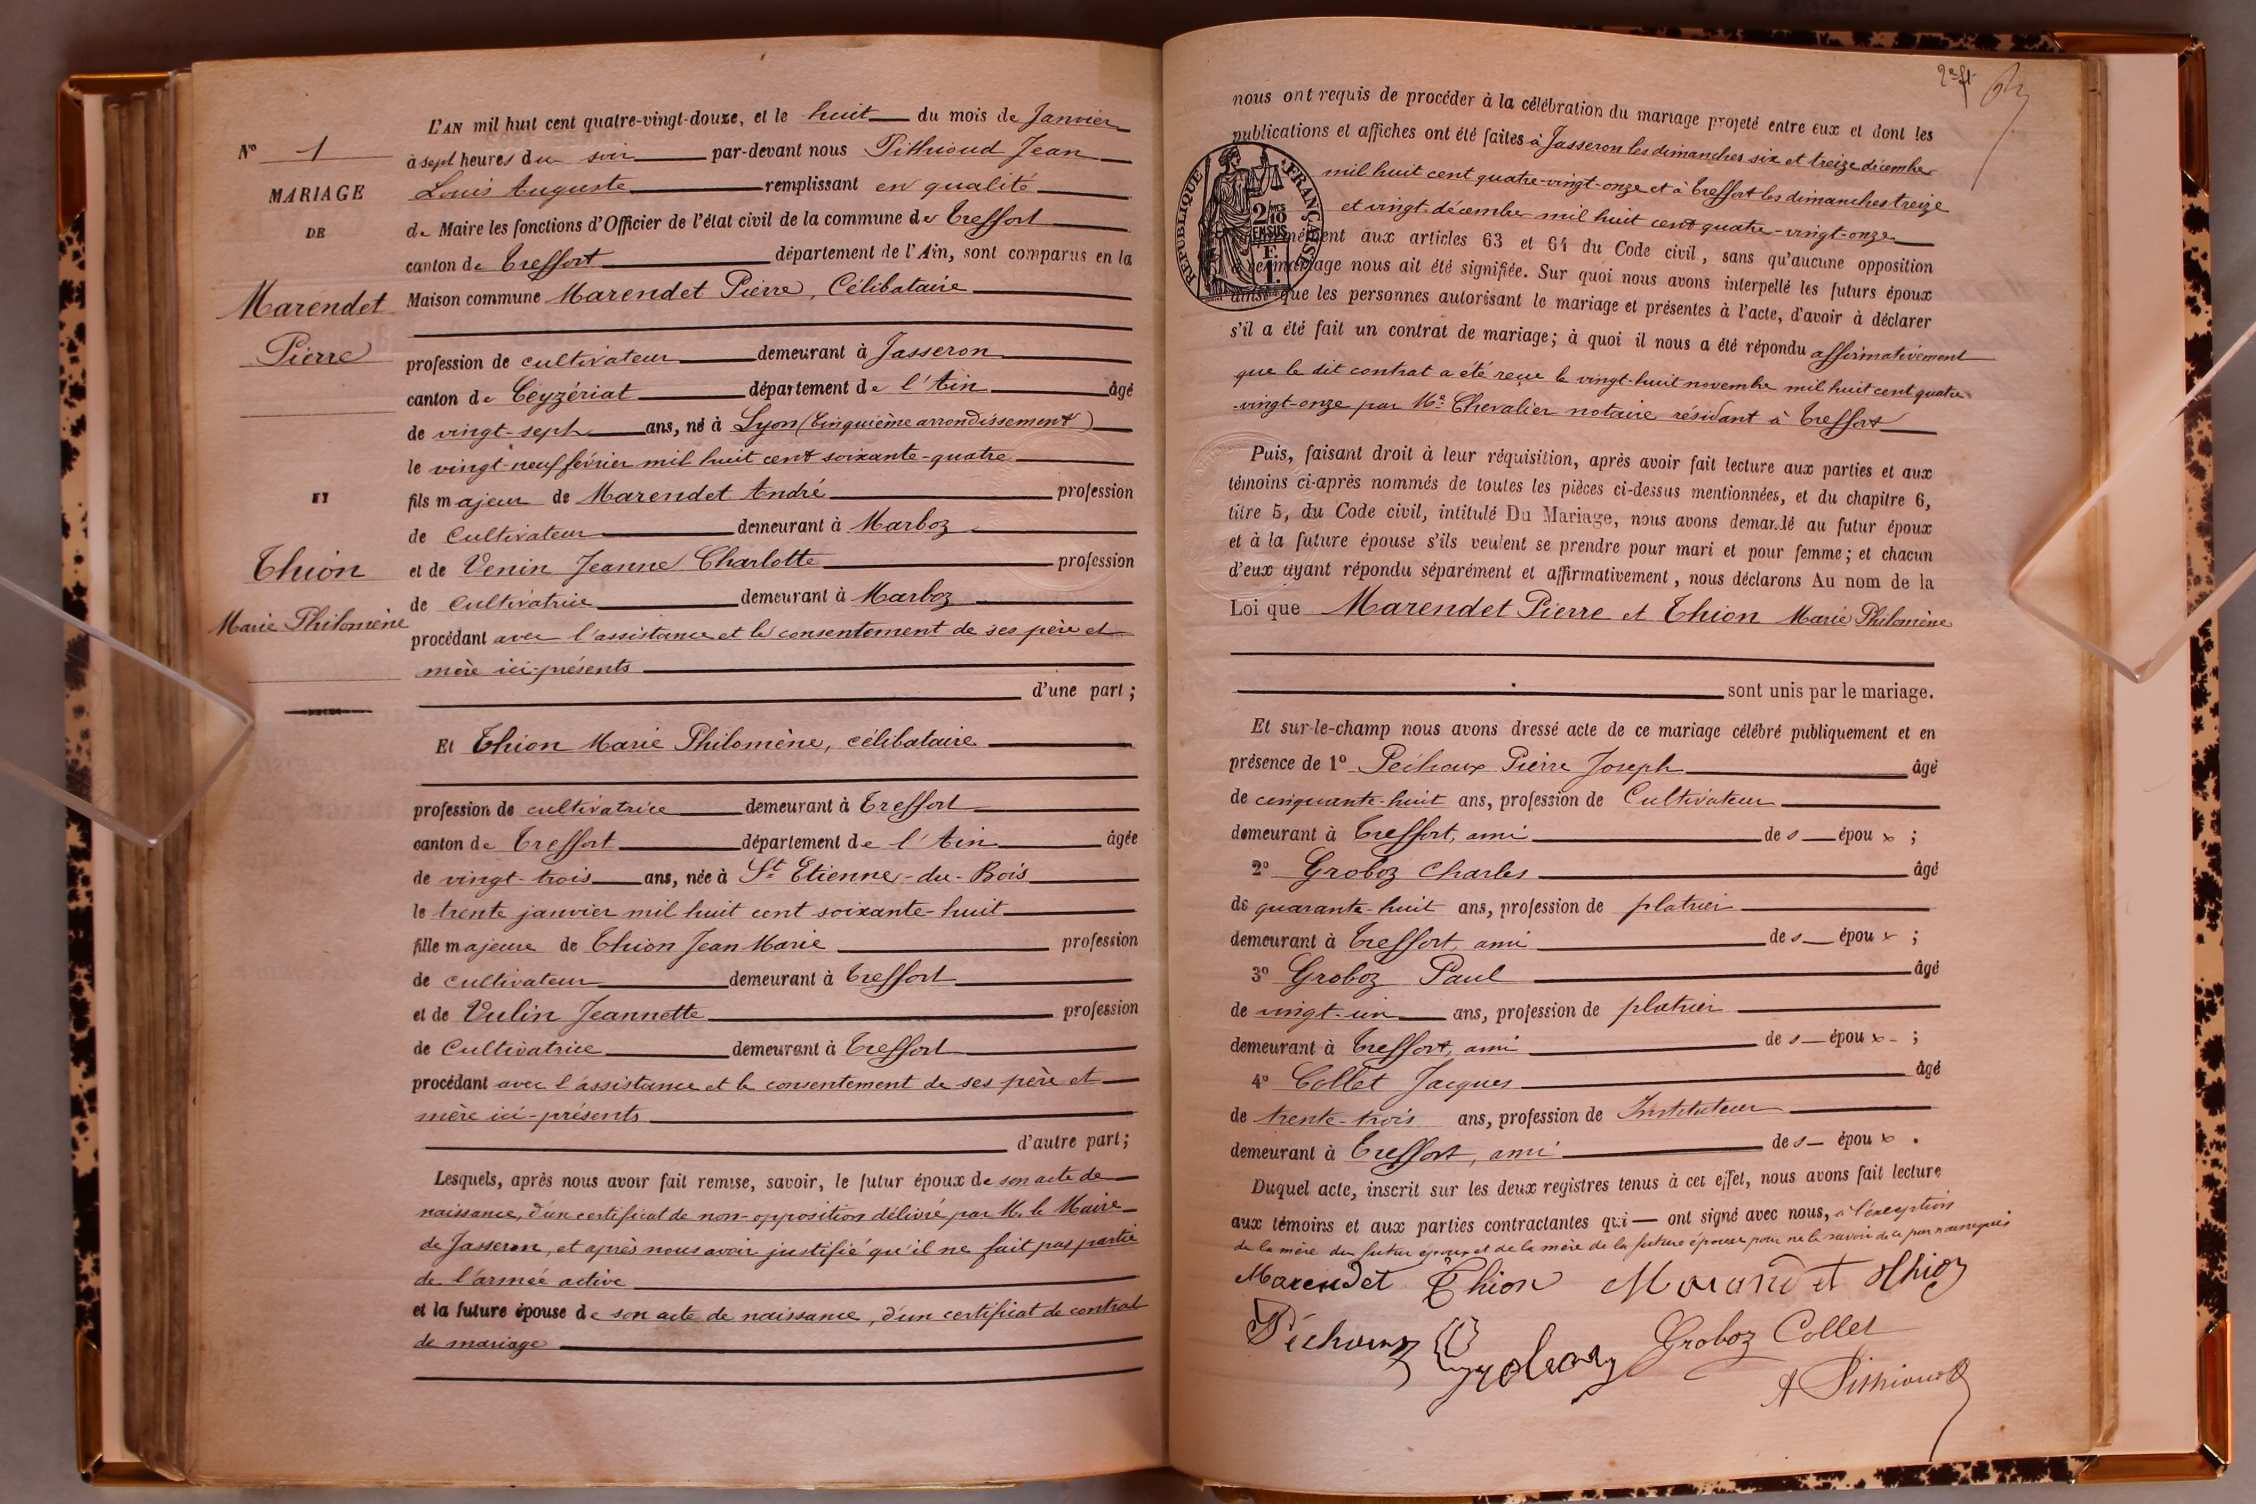 N° 1
MARIAGE
DE
Marendet
Pierre
ET
Thion
Marie Philomène
L'AN mil huit cent quatre-vingt-douze, et le huit du mois de Janvier
à sept heures du soir par-devant nous Pithioud Jean
Louis Auguste remplissant en qualité
de Maire les fonctions d'Officier de l'état civil de la commune de Treffort
canton de Treffort département de l'Ain, sont comparus en la
Maison commune Marendet Pierre, Célibataire
profession de cultivateur demeurant à Jasseron
canton de Ceyzériat département de l'Ain âgé
de vingt-sept ans, né à Lyon (Cinquième arrondissement)
le vingt-neuf février mil huit cent soixante-quatre
fils majeur de Marendet André profession
de Cultivateur demeurant à Marboz
et de Venin Jeanne Charlotte profession
de Cultivatrice demeurant à Marboz
procédant avec l'assistance et le consentement de ses père et
mère ici-présents
d'une part;
Et Thion Marie Philomène, célibataire
profession de cultivatrice demeurant à Treffort
canton de Treffort département de l'Ain âgée
de vingt-trois ans, née à St Etienne-du-Bois
le trente janvier mil huit cent soixante-huit
fille majeure de Thion Jean Marie profession
de cultivateur demeurant à Treffort
et de Vulin Jeannette profession
de Cultivatrice demeurant à Treffort
procédant avec l'assistance et le consentement de ses père et
mère ici-présents
d'autre part;
Lesquels, après nous avoir fait remise, savoir, le futur époux de son acte de
naissance, d'un certificat de non-opposition délivré par M. le Maire
de Jasseron, et après nous avoir justifié qu'il ne fait pas partie
de l'armée active
et la future épouse de son acte de naissance, d'un certificat de contrat
de mariage
nous ont requis de procéder à la célébration du mariage projeté entre eux et dont les
publications et affiches ont été faites à Jasseron les dimanches six et treize décembre
mil huit cent quatre-vingt-onze et à Treffort les dimanches treize
et vingt décembre mil huit cent quatre-vingt-onze
RÉPUBLIQUE FRANÇAISE
2/10 EN SUS
1 F.
aux articles 63 et 64 du Code civil, sans qu'aucune opposition
à ce mariage nous ait été signifiée. Sur quoi nous avons interpellé les futurs époux
ainsi que les personnes autorisant le mariage et présentes à l'acte, d'avoir à déclarer
s'il a été fait un contrat de mariage; à quoi il nous a été répondu affirmativement
que le dit contrat a été reçu le vingt-huit novembre mil huit cent quatre
-vingt-onze par Me Chevalier notaire résidant à Treffort
Puis, faisant droit à leur réquisition, après avoir fait lecture aux parties et aux
témoins ci-après nommés de toutes les pièces ci-dessus mentionnées, et du chapitre 6,
titre 5, du Code civil, intitulé Du Mariage, nous avons demandé au futur époux
et à la future épouse s'ils veulent se prendre pour mari et pour femme; et chacun
d'eux ayant répondu séparément et affirmativement, nous déclarons Au nom de la
Loi que Marendet Pierre et Thion Marie Philomène
sont unis par le mariage.
Et sur-le-champ nous avons dressé acte de ce mariage célébré publiquement et en
présence de 1° Péchoux Pierre Joseph âgé
de cinquante-huit ans, profession de Cultivateur
demeurant à Treffort, ami des époux ;
2° Groboz Charles âgé
de quarante-huit ans, profession de platrier
demeurant à Treffort, ami des époux ;
3° Groboz Paul âgé
de vingt-un ans, profession de platrier
demeurant à Treffort, ami des époux ;
4° Collet Jacques âgé
de trente-trois ans, profession de Instituteur
demeurant à Treffort, ami des époux .
Duquel acte, inscrit sur les deux registres tenus à cet effet, nous avons fait lecture
aux témoins et aux parties contractantes qui ont signé avec nous, à l'exception
de la mère du futur époux et de la mère de la future épouse pour ne le savoir de ce par nous requis
Marendet Thion Marandet thion
Péchoux Groboz Collet
A Pithioud